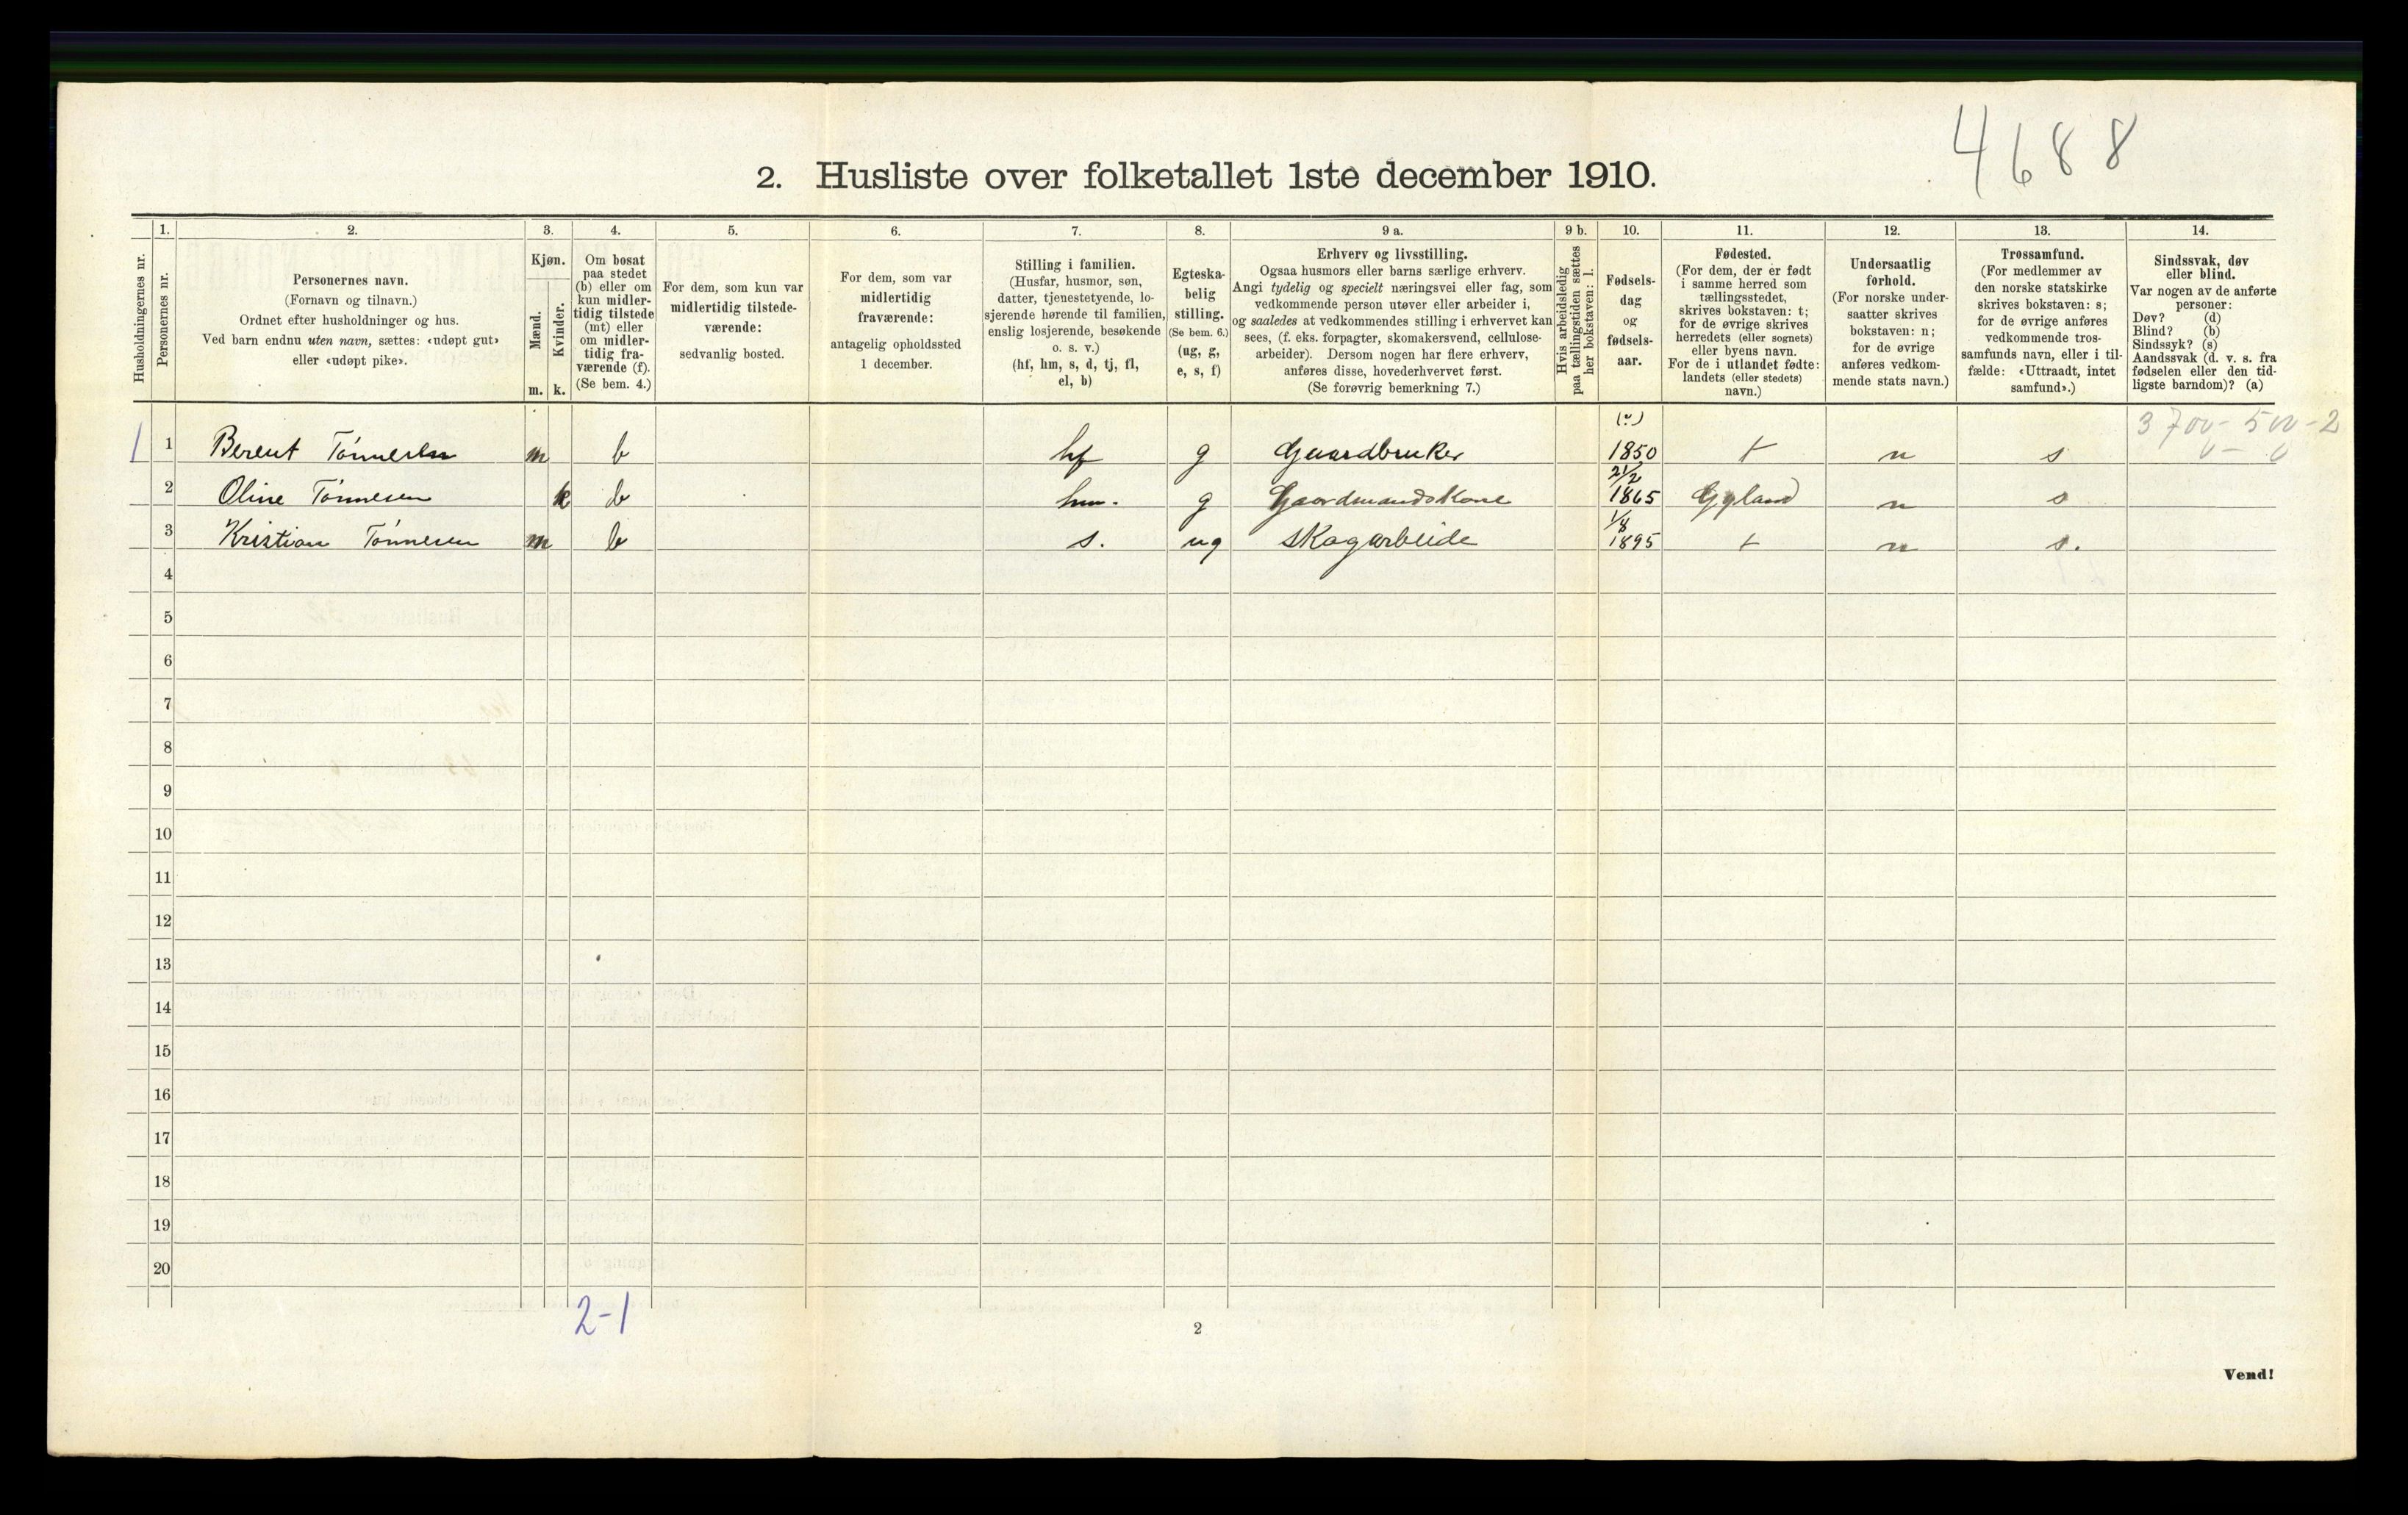 4688
2. Husliste over folketallet 1ste december 1910.
Husholdningernes nr.
1.
Personernes nr.
2.
Personernes navn.
(Fornavn og tilnavn.)
Ordnet efter husholdninger og hus.
Ved barn endnu uten navn, sættes: «udøpt gut»
eller «udøpt pike».
3.
Kjøn.
Mænd.
Kvinder.
m. k.
4.
Om bosat
paa stedet
(b) eller om
kun midler-
tidig tilstede
(mt) eller
om midler-
tidig fra-
værende (f).
(Se bem. 4.)
5.
For dem, som kun var
midlertidig tilstede-
værende:
sedvanlig bosted.
6.
For dem, som var
midlertidig
fraværende:
antagelig opholdssted
1 december.
7.
Stilling i familien.
(Husfar, husmor, søn,
datter, tjenestetyende, lo-
sjerende hørende til familien,
enslig losjerende, besøkende
o. s. v.)
(hf, hm, s, d, tj, fl,
el, b)
8.
Egteska-
belig
stilling.
(Se bem. 6.)
(ug, g,
e, s, f)
9 a.
Erhverv og livsstilling.
Ogsaa husmors eller barns særlige erhverv.
Angi tydelig og specielt næringsvei eller fag, som
vedkommende person utøver eller arbeider i,
og saaledes at vedkommendes stilling i erhvervet kan
sees, (f. eks. forpagter, skomakersvend, cellulose-
arbeider). Dersom nogen har flere erhverv,
anføres disse, hovederhvervet først.
(Se forøvrig bemerkning 7.)
9 b.
Hvis arbeidsledig
paa tællingstiden sættes
her bokstaven: l.
10.
Fødsels-
dag
og
fødsels-
aar.
11.
Fødested.
(For dem, der er født
i samme herred som
tællingsstedet,
skrives bokstaven: t;
for de øvrige skrives
herredets (eller sognets)
eller byens navn.
For de i utlandet fødte:
landets (eller stedets)
navn.)
12.
Undersaatlig
forhold.
(For norske under-
saatter skrives
bokstaven: n;
for de øvrige
anføres vedkom-
mende stats navn.)
13.
Trossamfund.
(For medlemmer av
den norske statskirke
skrives bokstaven: s;
for de øvrige anføres
vedkommende tros-
samfunds navn, eller i til-
fælde: «Uttraadt, intet
samfund».)
14.
Sindssvak, døv
eller blind.
Var nogen av de anførte
personer:
Døv? (d)
Blind? (b)
Sindssyk? (s)
Aandssvak (d. v. s. fra
fødselen eller den tid-
ligste barndom)? (a)
3700-500-2
0 - 0
1 1 Berent Tønnesen m b hf g Gaardbruker 1850 t n s
2 Oline Tønnesen k b hm. g Gaardmandskone 21/2 1865 Gyland n s
3 Kristian Tønnesen m b s. ug Skogarbeide 1/8 1895 t n s.
4
5
6
7
8
9
10
11
12
13
14
15
16
17
18
19
20
2-1
2
Vend!